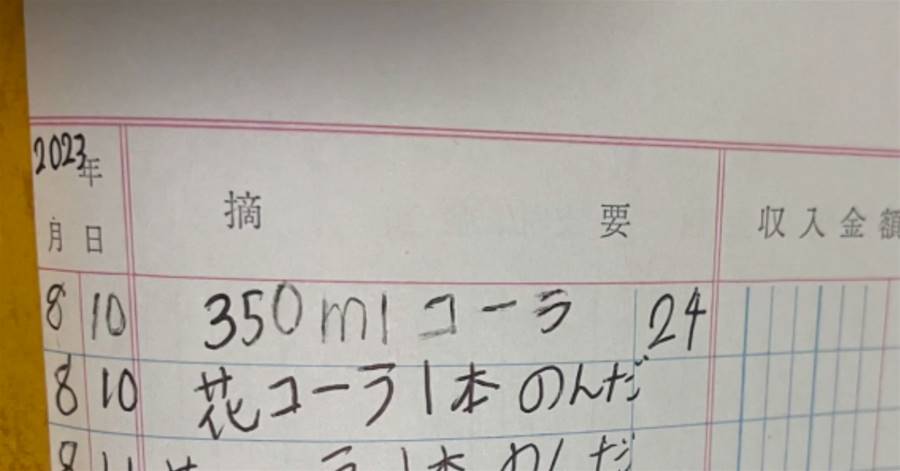 2023年
月 日 摘 要 収入金額
8 10 350ml コーラ 24
8 10 花コーラ1本 のんだ
8 11 ラ1本のんだ